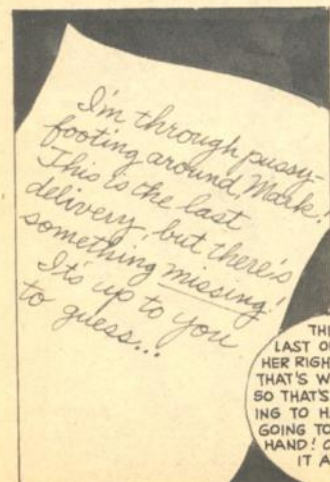 I'm through pussy-
footing around, Mark.
This is the last
delivery, but there's
something missing!
It's up to you
to guess...
THE
LAST O
HER RIGH
THAT'S W
SO THAT'S
ING TO H
GOING TO
HAND! C
IT A